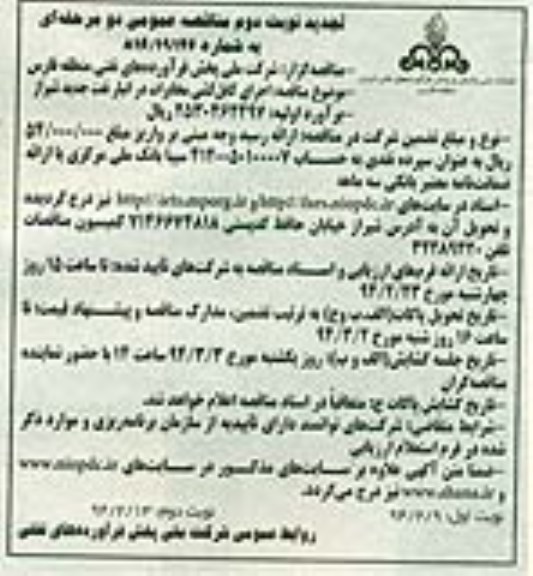 تجدید نوبت دوم مناقصه عمومی دو مرحله‌ای
به شماره ۸۱۶/۱۹۱۴۶
-مناقصه‌گزار: شرکت ملی پخش فرآورده‌های نفتی منطقه فارس
-موضوع مناقصه: اجرای کابل‌کشی مخابرات در انبار نفت جدید شیراز
-برآورد اولیه: ریال
-نوع و مبلغ تضمین شرکت در مناقصه: ارائه رسید وجه مبنی بر واریز مبلغ ۵۴/۰۰۰/۰۰۰
ریال به عنوان سپرده نقدی به حساب سیبا بانک ملی مرکزی یا ارائه
ضمانت‌نامه معتبر بانکی سه ماهه
-اسناد در سایت‌های http://iets.mporg.ir نیز درج گردیده
و تحویل آن به آدرس شیراز خیابان حافظ کدپستی ۷۱۴۶۶۷۴۸۱۸ کمیسیون مناقصات
تلفن
-تاریخ ارائه فرم‌های ارزیابی و اسناد مناقصه به شرکت‌های تایید شده: تا ساعت ۱۵ روز
چهارشنبه مورخ ۹۴/۲/۲۳
-تاریخ تحویل پاکات(الف،ب و ج) به ترتیب تضمین، مدارک مناقصه و پیشنهاد قیمت: تا
ساعت ۱۶ روز شنبه مورخ ۹۴/۳/۲
-تاریخ جلسه گشایش(الف و ب): روز یکشنبه مورخ ۹۴/۳/۳ ساعت ۱۴ با حضور نماینده
مناقصه‌گران
-تاریخ گشایش پاکات ج: متعاقباً در اسناد مناقصه اعلام خواهد شد.
-شرایط متقاضی: شرکت‌های توانمند دارای تاییدیه از سازمان برنامه‌ریزی و موارد ذکر
شده در فرم استعلام ارزیابی
-ضمنا متن آگهی علاوه بر سایت‌های مذکور در سایت‌های www.niopdc.ir
و www.shana.ir نیز درج می‌گردد.
نوبت اول: ۹۴/۲/۹ نوبت دوم: ۹۴/۲/۱۳
روابط عمومی شرکت ملی پخش فرآورده‌های نفتی